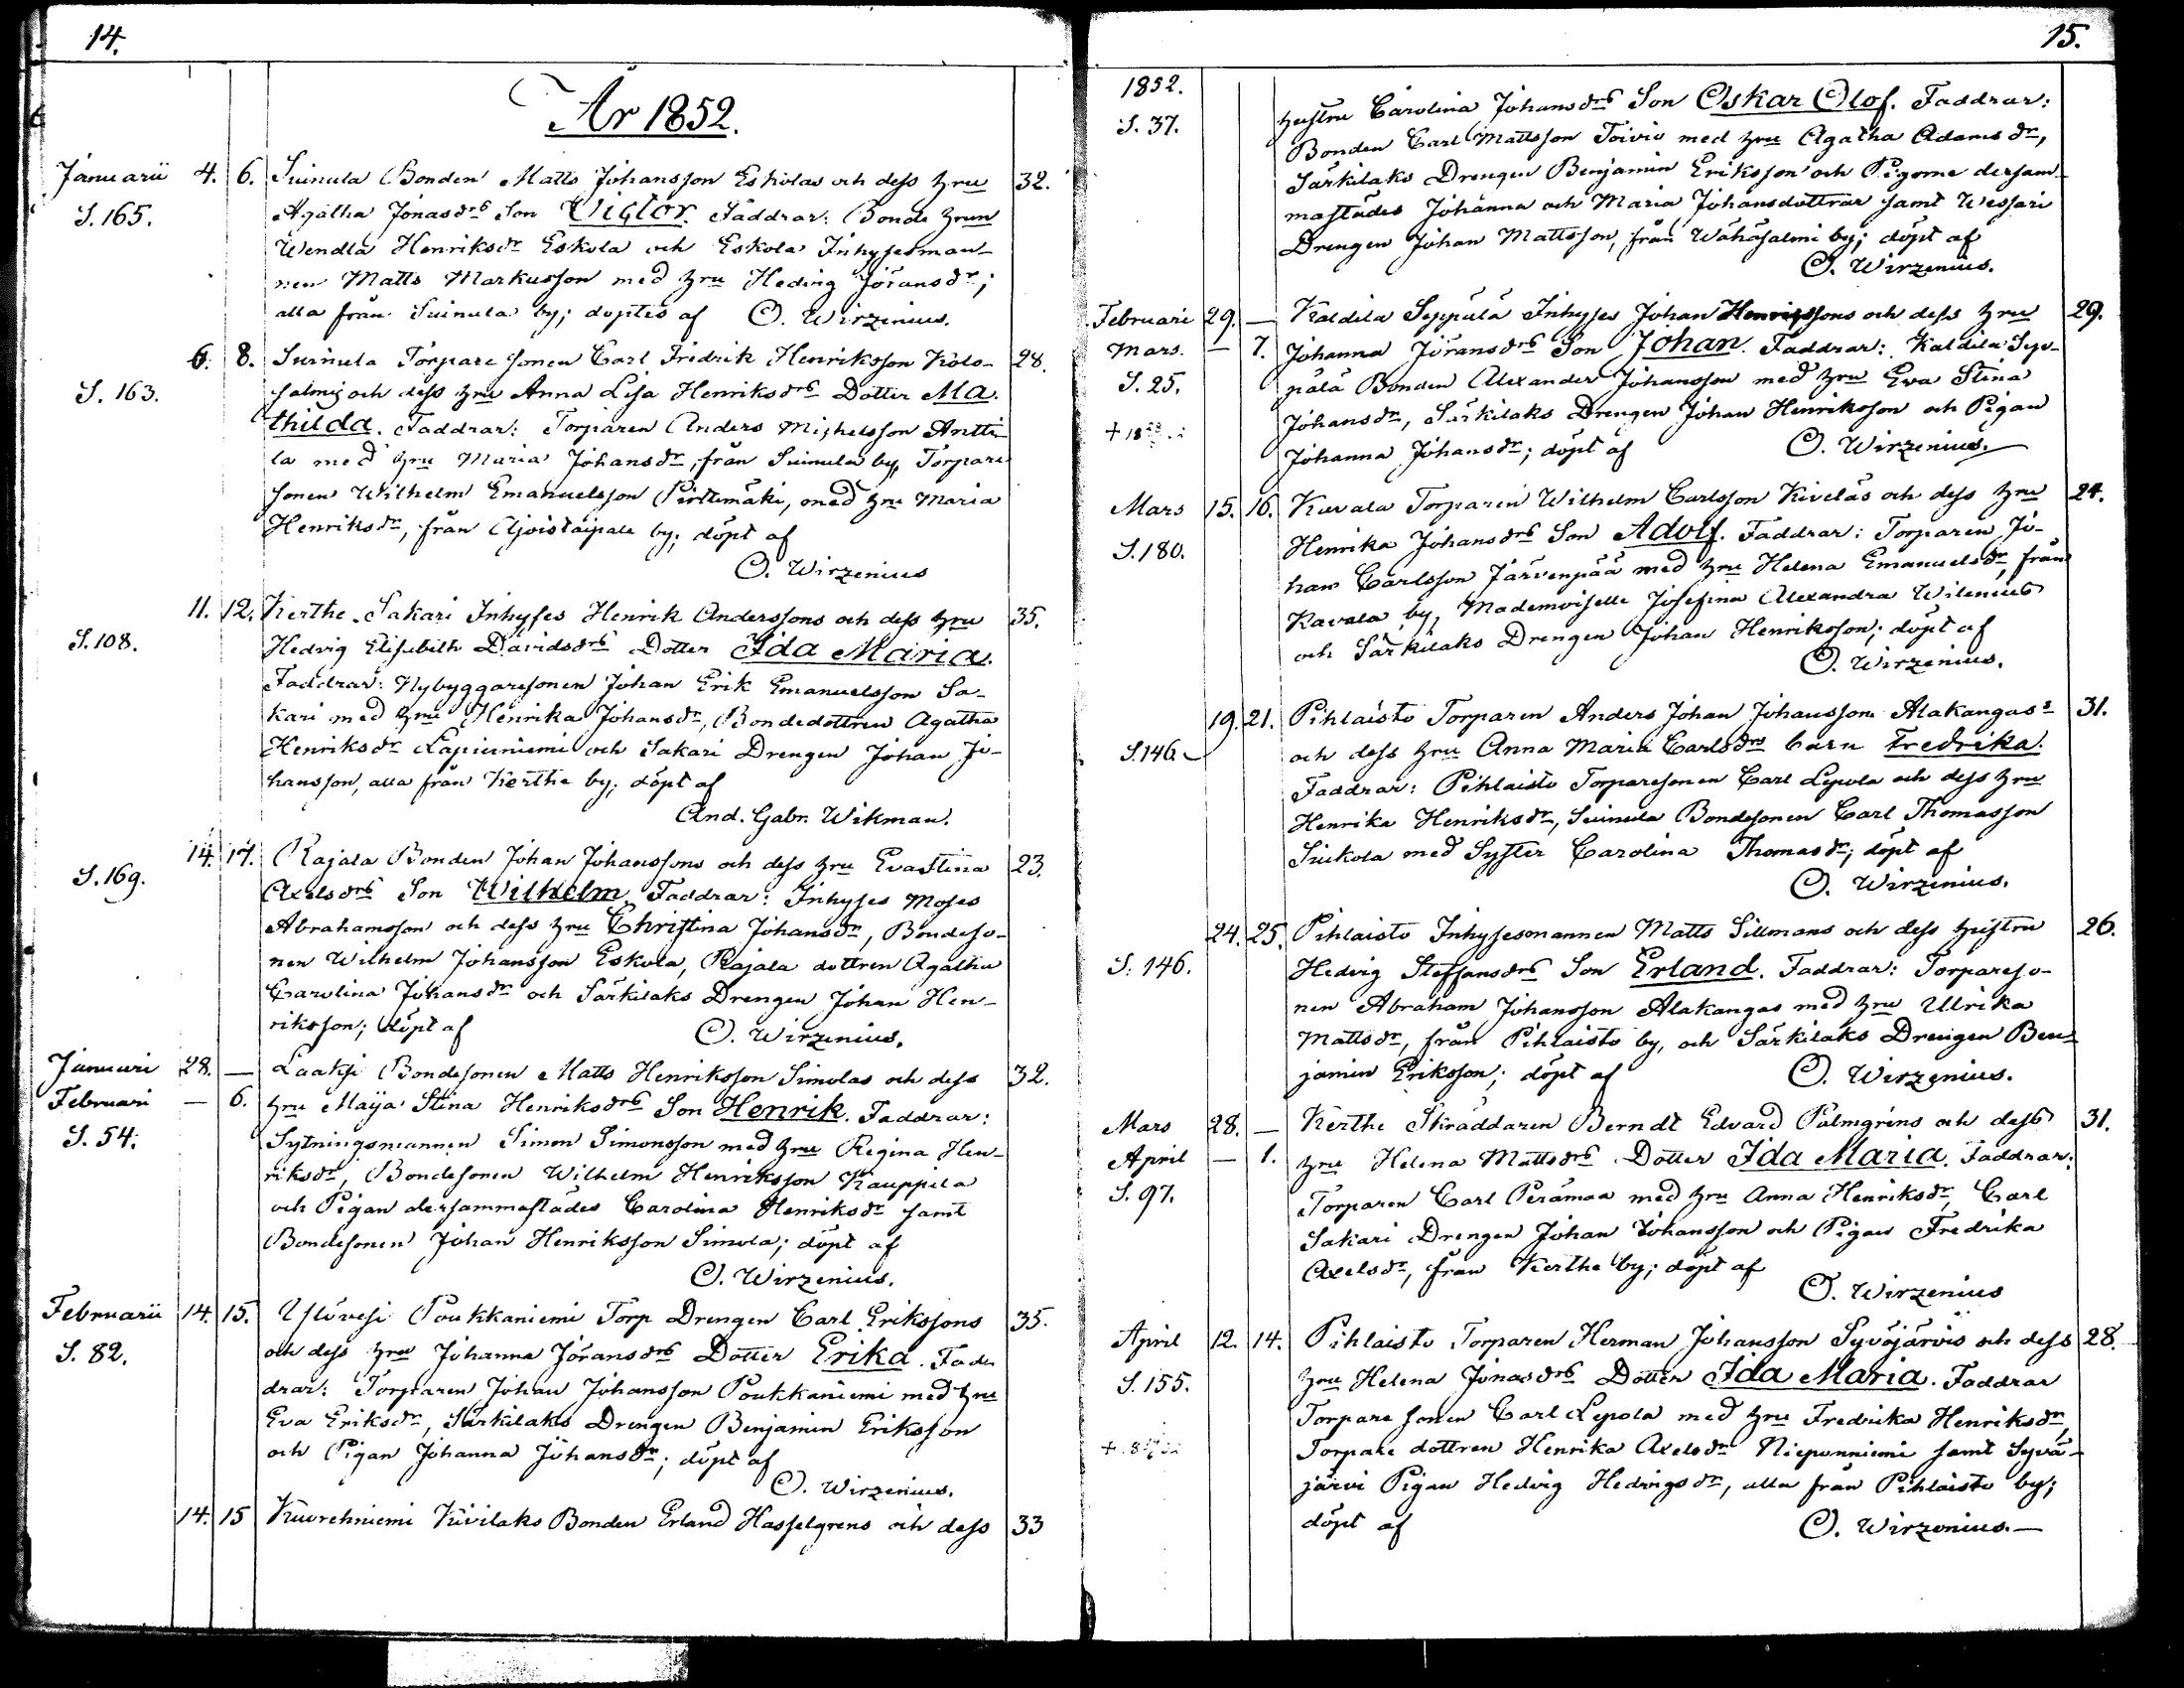 14.
År 1852.
Januarii 4. 6. Suinula Bonden Matts Johansson Eskolas och dess hru 32.
S. 165. Agatha Jonasdrs Son Victor. Faddrar: Bonde hrun
Wendla Henriksdr Eskola och Eskola Inhysesman-
nen Matts Markusson med hru Hedvig Jöransdr;
alla från Suinula by; döptes af O. Wirzenius.
6. 8. Suinula Torparesonen Carl Fredrik Henriksson Kolo- 28.
S. 163. salmis och dess hru Anna Lisa Henriksdrs Dotter Ma-
thilda. Faddrar: Torparen Anders Michelsson Antti-
la med hru Maria Johansdr, från Suinula by, Torpare
sonen Wilhelm Emanuelsson Pirttimäki, med hru Maria
Henriksdr, från Ajoistaipale by; döpt af
O. Wirzenius
11. 12. Kerthe Sakari Inhyses Henrik Anderssons och dess hru 35.
S. 108. Hedvig Elisabeth Davidsdrs Dotter Ida Maria.
Faddrar: Nybyggaresonen Johan Erik Emanuelsson Sa-
kari med hru Henrika Johansdr, Bondedottren Agatha
Henriksdr Lapinniemi och Sakari Drengen Johan Jo-
hansson, alla från Kerthe by; döpt af
And. Gabr. Wikman.
14. 17. Rajala Bonden Johan Johanssons och dess hru Eva Stina 23.
S. 169. Axelsdrs Son Wilhelm. Faddrar: Inhyses Moses
Abrahamsson och dess hru Christina Johansdr, Bondeso-
nen Wilhelm Johansson Eskola, Rajala dottren Agatha
Carolina Johansdr och Särkilaks Drengen Johan Hen-
riksson; döpt af O. Wirzenius.
Januari 28. — Laaksi Bondesonen Matts Henriksson Simolas och dess 32.
Februari — 6. hru Maija Stina Henriksdrs Son Henrik. Faddrar:
S. 54. Sytningsmannen Simon Simonsson med hru Regina Hen-
riksdr, Bondesonen Wilhelm Henriksson Kauppila
och Pigan dersammastädes Carolina Henriksdr samt
Bondesonen Johan Henriksson Simola; döpt af
O. Wirzenius.
Februarii 14. 15. Ylövesi Poukkaniemi Torp Drengen Carl Erikssons 35.
S. 82. och dess hru Johanna Jöransdrs Dotter Erika. Fad-
drar: Torparen Johan Johansson Poukkaniemi med hru
Eva Eriksdr, Särkilaks Drengen Benjamin Eriksson
och Pigan Johanna Johansdr; döpt af
O. Wirzenius.
14. 15 Kuorehniemi Kivilaks Bonden Erland Hasselgrens och dess 33
15.
1852.
S. 37. hustru Carolina Johansdrs Son Oskar Olof. Faddrar:
Bonden Carl Mattsson Toivio med hru Agatha Adamsdr,
Särkilaks Drengen Benjamin Eriksson och Pigorne dersam-
mastädes Johanna och Maria Johansdottrar samt Wessari
Drengen Johan Mattsson, från Wähäsalmi by; döpt af
O. Wirzenius.
Februari 29. — Kaldila Seppälä Inhyses Johan Henrikssons och dess hru 29.
Mars. — 7. Johanna Jöransdrs Son Johan. Faddrar: Kaldila Sep-
S. 25. pälä Bonden Alexander Johansson med hru Eva Stina
Johansdr, Särkilaks Drengen Johan Henriksson och Pigan
Johanna Johansdr; döpt af O. Wirzenius.
Mars 15. 16. Kavala Torparen Wilhelm Carlsson Kiveläs och dess hru 24.
S. 180. Henrika Johansdrs Son Adolf. Faddrar: Torparen Jo-
han Carlsson Järvenpää med hru Helena Emanuelsdr, från
Kavala by, Mademoiselle Josefina Alexandra Wilenius
och Särkilaks Drengen Johan Henriksson; döpt af
O. Wirzenius.
19. 21. Pihlaisto Torparen Anders Johan Johansson Alakangas 31.
S. 146. och dess hru Anna Maria Carlsdrs barn Fredrika.
Faddrar: Pihlaisto Torparesonen Carl Lepola och dess hru
Henrika Henriksdr, Suinula Bondesonen Carl Thomasson
Siukola med Syster Carolina Thomasdr; döpt af
O. Wirzenius.
24. 25. Pihlaisto Inhysesmannen Matts Sillmans och dess hustru 26.
S. 146. Hedvig Steffansdrs Son Erland. Faddrar: Torpareso-
nen Abraham Johansson Alakangas med hru Ulrika
Mattsdr, från Pihlaisto by, och Särkilaks Drengen Ben-
jamin Eriksson; döpt af O. Wirzenius.
Mars 28. — Kerthe Skräddaren Berndt Edvard Palmgrens och dess 31.
April — 1. hru Helena Mattsdrs Dotter Ida Maria. Faddrar:
S. 97. Torparen Carl Perämaa med hru Anna Henriksdr, Carl
Sakari Drengen Johan Johansson och Pigan Fredrika
Axelsdr, från Kerthe by; döpt af
O. Wirzenius
April 12. 14. Pihlaisto Torparen Herman Johansson Syväjärvis och dess 28.
S. 155. hru Helena Jonasdrs Dotter Ida Maria. Faddrar
Torpare sonen Carl Lepola med hru Fredrika Henriksdr,
Torpare dottren Henrika Axelsdr Nieponniemi samt Syvä-
järvi Pigan Hedvig Hedvigsdr, alla från Pihlaisto by;
döpt af O. Wirzenius.—